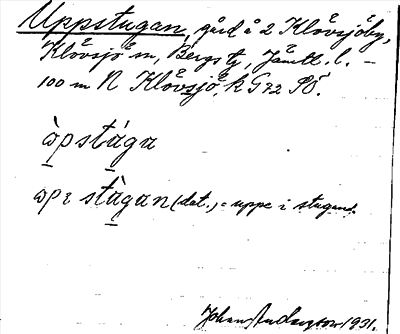 Uppstugan, gård å 2 Klövsjöby,
Klövsjö sn, Bergs tg, Jämtl. l. –
100 m N Klövsjö k G72 SÖ.
òpstága
òpε stàgan (dat.) = uppe i stugan.
Johan Anderzon 1931.